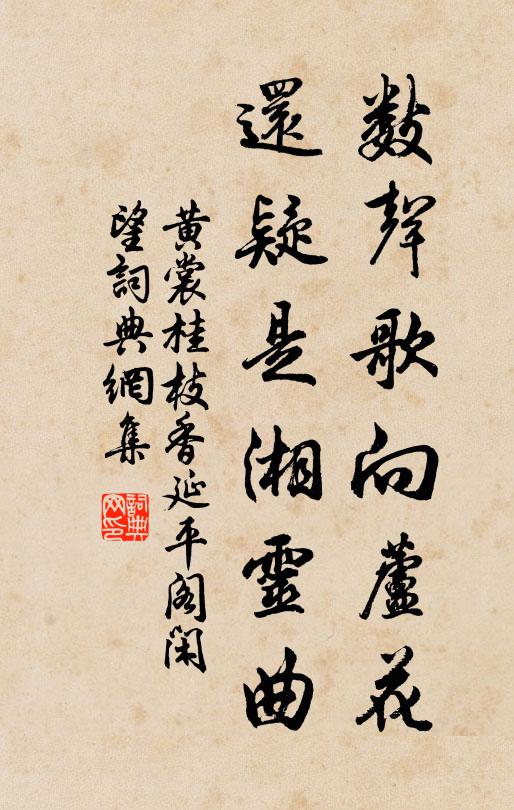 數聲歌向蘆花
還疑是湘靈曲
黄裳桂枝香延平阁闲
望詞典網集
詞典
网印